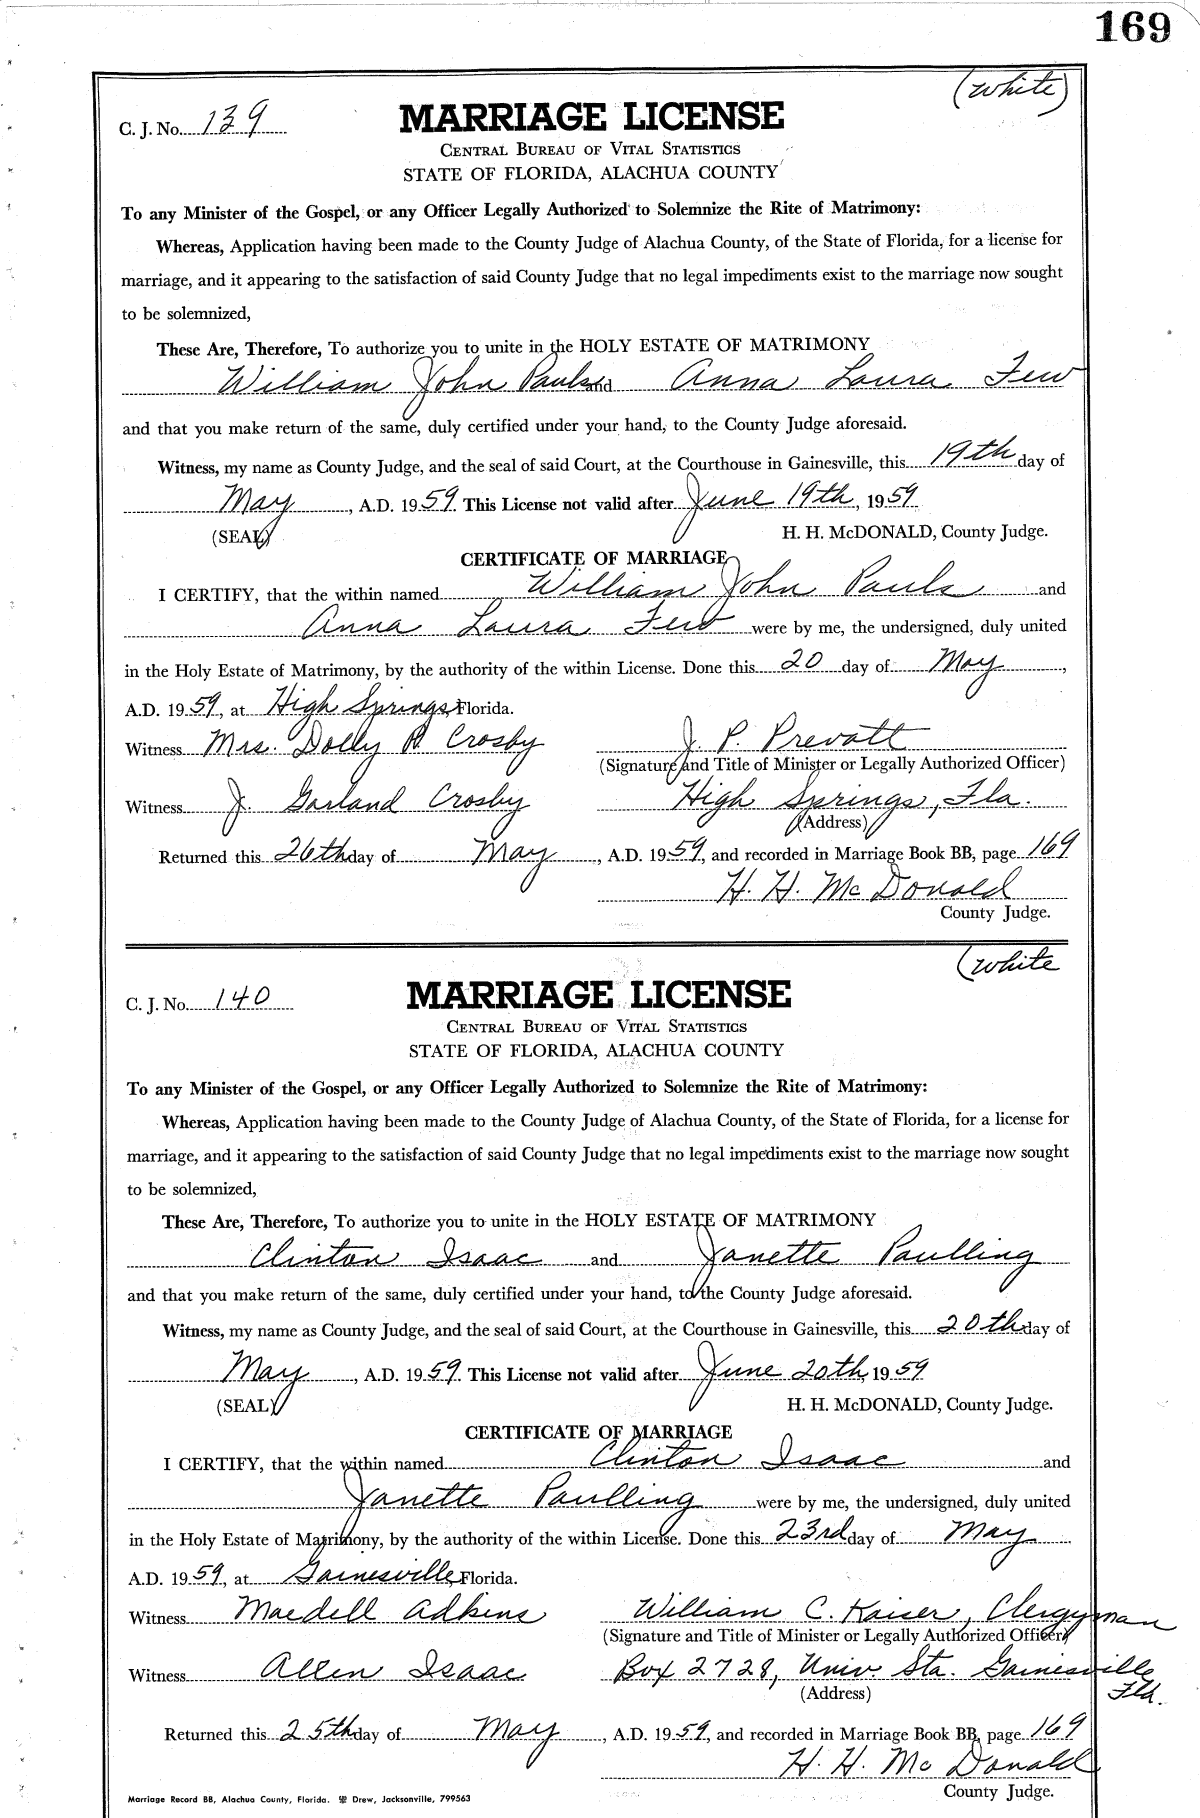 169
(White)
C. J. No. 139
MARRIAGE LICENSE
CENTRAL BUREAU OF VITAL STATISTICS
STATE OF FLORIDA, ALACHUA COUNTY
To any Minister of the Gospel, or any Officer Legally Authorized to Solemnize the Rite of Matrimony:
Whereas, Application having been made to the County Judge of Alachua County, of the State of Florida, for a license for
marriage, and it appearing to the satisfaction of said County Judge that no legal impediments exist to the marriage now sought
to be solemnized,
These Are, Therefore, To authorize you to unite in the HOLY ESTATE OF MATRIMONY
William John Pauls and Anna Laura Few
and that you make return of the same, duly certified under your hand, to the County Judge aforesaid.
Witness, my name as County Judge, and the seal of said Court, at the Courthouse in Gainesville, this 19th day of
May, A.D. 1959. This License not valid after June 19th, 1959
(SEAL) H. H. McDONALD, County Judge.
CERTIFICATE OF MARRIAGE
I CERTIFY, that the within named William John Pauls and
Anna Laura Few were by me, the undersigned, duly united
in the Holy Estate of Matrimony, by the authority of the within License. Done this 20 day of May,
A.D. 1959, at High Springs, Florida.
Witness Mrs. Dolly R. Crosby J. P. Prevatt
(Signature and Title of Minister or Legally Authorized Officer)
Witness J. Garland Crosby High Springs, Fla.
(Address)
Returned this 26th day of May, A.D. 1959, and recorded in Marriage Book BB, page 169
H. H. McDonald
County Judge.
(White
C. J. No. 140
MARRIAGE LICENSE
CENTRAL BUREAU OF VITAL STATISTICS
STATE OF FLORIDA, ALACHUA COUNTY
To any Minister of the Gospel, or any Officer Legally Authorized to Solemnize the Rite of Matrimony:
Whereas, Application having been made to the County Judge of Alachua County, of the State of Florida, for a license for
marriage, and it appearing to the satisfaction of said County Judge that no legal impediments exist to the marriage now sought
to be solemnized,
These Are, Therefore, To authorize you to unite in the HOLY ESTATE OF MATRIMONY
Clinton Isaac and Janette Paulling
and that you make return of the same, duly certified under your hand, to the County Judge aforesaid.
Witness, my name as County Judge, and the seal of said Court, at the Courthouse in Gainesville, this 20th day of
May, A.D. 1959. This License not valid after June 20th, 1959
(SEAL) H. H. McDONALD, County Judge.
CERTIFICATE OF MARRIAGE
I CERTIFY, that the within named Clinton Isaac and
Janette Paulling were by me, the undersigned, duly united
in the Holy Estate of Matrimony, by the authority of the within License. Done this 23rd day of May
A.D. 1959, at Gainesville, Florida.
Witness Maedell Adkins William C. Kaiser, Clergyman
(Signature and Title of Minister or Legally Authorized Officer)
Witness Allen Isaac Box 2728, Univ. Sta. Gainesville
Fla.
(Address)
Returned this 25th day of May, A.D. 1959, and recorded in Marriage Book BB, page 169
H. H. McDonald
County Judge.
Marriage Record BB, Alachua County, Florida. Drew, Jacksonville, 799563